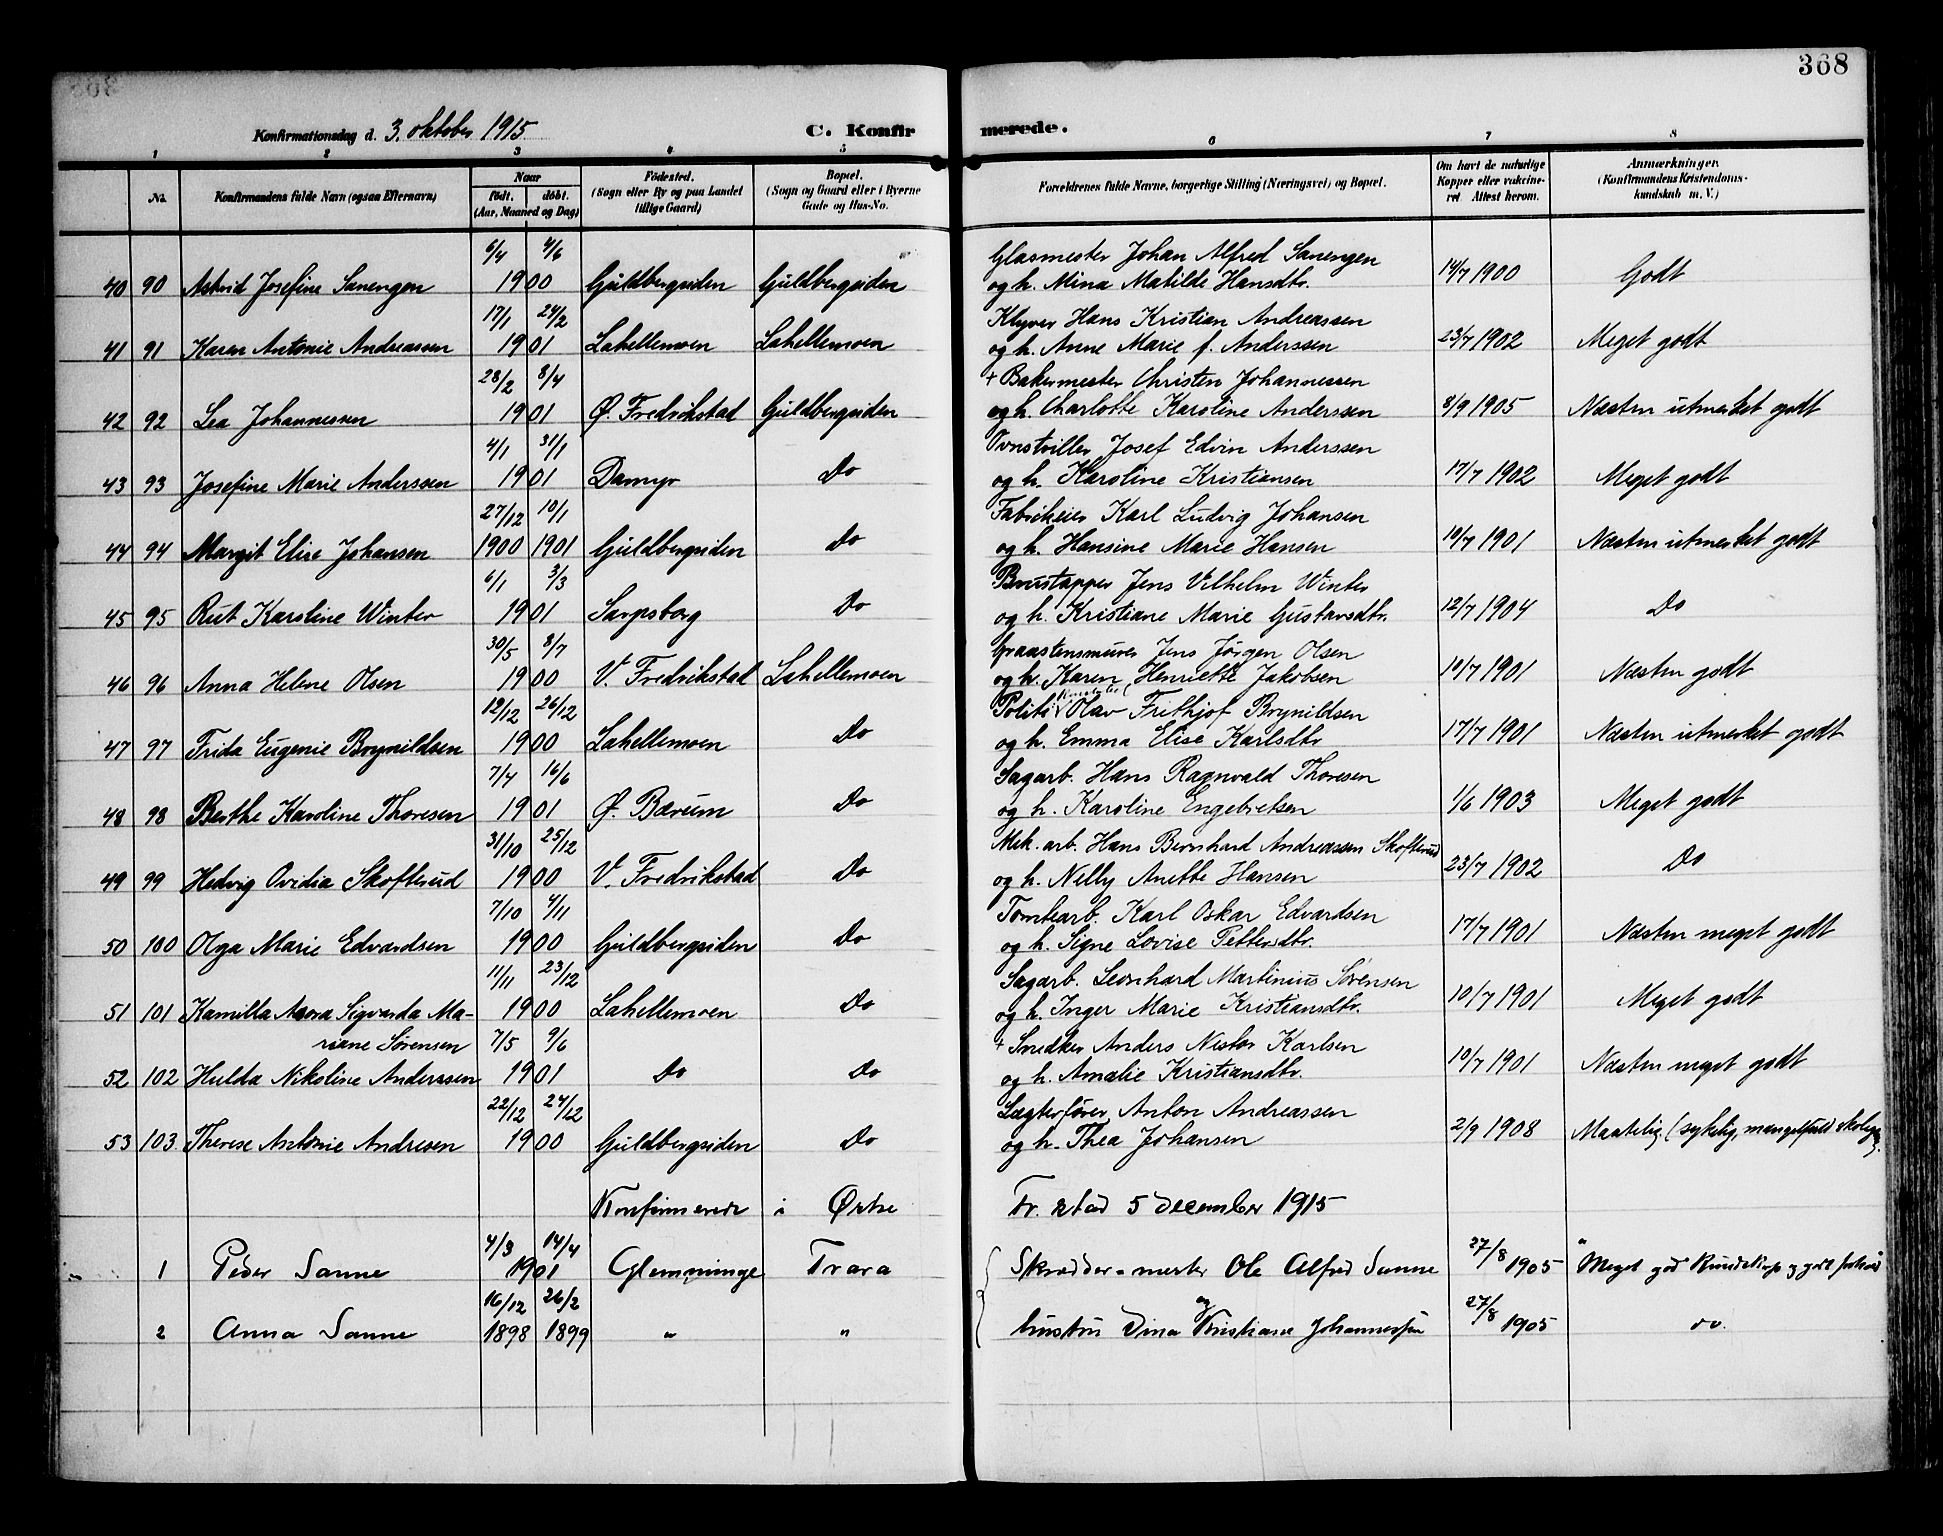 368
Konfirmationsdag d. 3. oktober 1915
C. Konfirmerede.
1 2 3 4 5 6 7 8
No. Konfirmandens fulde Navn (ogsaa Efternavn) Naar født. døbt. (Aar, Maaned og Dag) Fødested. (Sogn eller By og paa Landet tillige Gaard) Bopæl. (Sogn og Gaard eller i Byerne Gade og Hus-No. Forældrenes fulde Navne, borgerlige Stilling (Næringsvei) og Bopæl. Om havt de naturlige Kopper eller vaccineret Attest herom. Anmærkninger. (Konfirmandens Kristendomskundskab m. V.)
6/4 4/6 Glasmester Johan Alfred Sanengen
40 90 Astrid Josefine Sanengen 1900 Guldbergsiden Guldbergsiden og h. Mina Matilde Hansdtr. 14/7 1900 Godt
17/1 24/2 Klyver Hans Kristian Andreassen
41 91 Karen Antonie Andreassen 1901 Lahellemoen Lahellemoen og h. Anne Marie f. Anderssen 23/7 1902 Meget godt
28/2 8/4 + Bakermester Christen Johannessen
42 92 Lea Johannessen 1901 Ø. Fredrikstad Guldbergsiden og h. Charlotte Karoline Anderssen 8/9 1905 Næsten utmerket godt
4/1 31/1 Josef Edvin Anderssen
43 93 Josefine Marie Anderssen 1901 Damyr Do og h. Karoline Kristiansen 17/7 1902 Meget godt
27/12 10/1 Fabrikeier Karl Ludvig Johansen
44 94 Margit Elise Johansen 1900 1901 Guldbergsiden Do og h. Hansine Marie Hansen 10/7 1901 Næsten utmerket godt
6/1 3/3 Brustapper Jens Vilhelm Winter
45 95 Rut Karoline Winter 1901 Sarpsborg Do og h. Kristiane Marie Gustavsdtr. 12/7 1904 Do
30/5 8/7 Graastensmurer Jens Jørgen Olsen
46 96 Anna Helene Olsen 1900 V. Fredrikstad Lahellemoen og h. Karen Henriette Jakobsen 10/7 1901 Næsten godt
12/12 26/12 Politikonstabel Olav Frithjof Brynildsen
47 97 Frida Eugenie Brynildsen 1900 Lahellemoen Do og h. Emma Elise Karlsdtr 17/7 1901 Næsten utmerket godt
7/4 16/6 Sagarb. Hans Ragnvald Thoresen
48 98 Berthe Karoline Thoresen 1901 Ø. Bærum Do og h. Karoline Engebretsen 1/6 1903 Meget godt
31/10 25/12 Mek. arb. Hans Bernhard Andreassen Skofterud
49 99 Hedvig Ovidia Skofterud 1900 V. Fredrikstad Do og h. Nelly Anette Hansen 23/7 1902 Do
7/10 4/11 Tomtearb. Karl Oskar Edvardsen
50 100 Olga Marie Edvardsen 1900 Guldbergsiden Do og h. Signe Lovise Pettersdtr. 17/7 1901 Næsten meget godt
11/11 23/12 Sagarb. Leonhard Martinius Sørensen
51 101 Kamilla Asora Sigvarda Ma- 1900 Lahellemoen Do og h. Inger Marie Kristiansdtr. 10/7 1901 Meget godt
riane Sørensen 7/5 9/6 + Snedker Anders Nestor Karlsen
52 102 Hulda Nikoline Anderssen 1901 Do Do og h. Amalie Kristiansdtr. 10/7 1901 Næsten meget godt
22/12 24/12 Lægterfører Anton Andreassen
53 103. Therese Antonie Andresen 1900 Guldbergsiden Do og h. Thea Johansen 2/9 1908 Maatelig. (sykelig, mangelfuld skoleg.
Konfirmerede i Østre Fr.stad 5 december 1915
4/3 14/4
1 Peder Sanne 1901 Glemminge Trara Skrædder-mester Ole Alfred Sanne 27/8 1905 "Meget god Kundskap og godt forhold
16/12 26/2
2 Anna Sanne 1898 1899 " " og hustru Dina Kristiane Johannessen 27/8 1905 do.